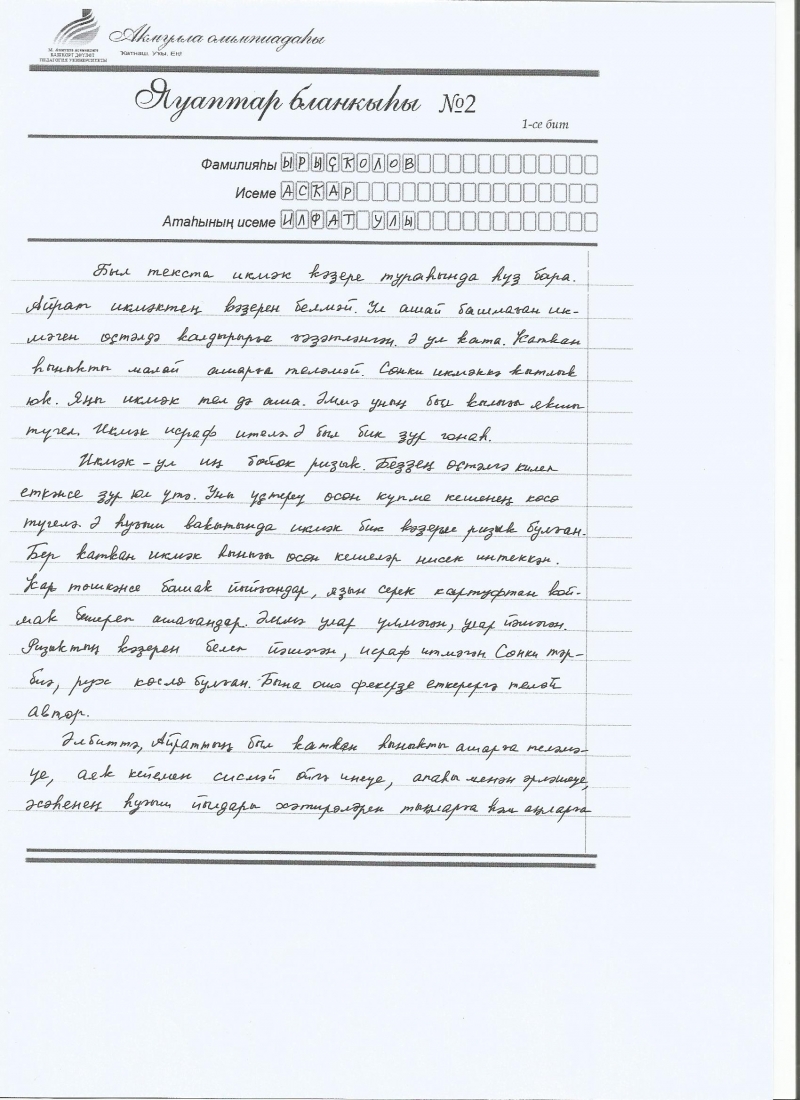 Акмулла олимпиадаһы
Ҡатнаш. Уҡы. Еңе
М. Аҡмулла исемендәге
БАШҠОРТ ДӘҮЛӘТ
ПЕДАГОГИЯ УНИВЕРСИТЕТЫ
Яуаптар бланкыһы №2
1-се бит
Фамилияһы ЫРЫҪҠОЛОВ
Исеме АСКАР
Атаһының исеме ИЛФАТ УЛЫ
Был текста икмәк ҡәҙере тураһында һүҙ бара.
Айрат икмәктең ҡәҙерен белмәй. Ул ашай башлаған ик-
мәген өҫтәлдә ҡалдырырға ғәҙәтләнгән. Ә ул ката. Ҡатҡан
һыныҡты малай ашарға теләмәй. Сөнки икмәккә ҡытлыҡ
юҡ. Яңы икмәк тел дә аша. Әммә уның был ҡылығы яҡшы
түгел. Икмәк исраф ителә. Ә был бик ҙур гонаһ.
Икмәк – ул иң бөйөк ризыҡ. Беҙҙең өҫтәлгә килеп
еткәнсе ҙур юл үтә. Уны үҫтереү өсөн күпме кешенең көсө
түгелә. Ә һуғыш ваҡытында икмәк бик ҡәҙерле ризыҡ булған.
Бер ҡатҡан икмәк һынығы өсөн кешеләр нисек интеккән.
Ҡар төшкәнсе башаҡ йыйғандар, яҙын серек картуфтан ҡой-
маҡ бешереп ашағандар. Әммә улар үлмәгән, улар йәшәгән.
Ризыҡтың ҡәҙерен белеп йәшәгән, исраф итмәгән Сөнки тәр-
биә, рух көслө булған. Бына ошо фекерҙе еткерергә теләй
автор.
Әлбиттә, Айраттың был ҡатҡан һыныҡты ашарға теләмә-
үе, аяҡ кейемен сисмәй өйгә инеүе, апаһы менән әрләшеүе,
әсәһенең һуғыш йылдары хәтирәләрен тыңларға һәм аңларға